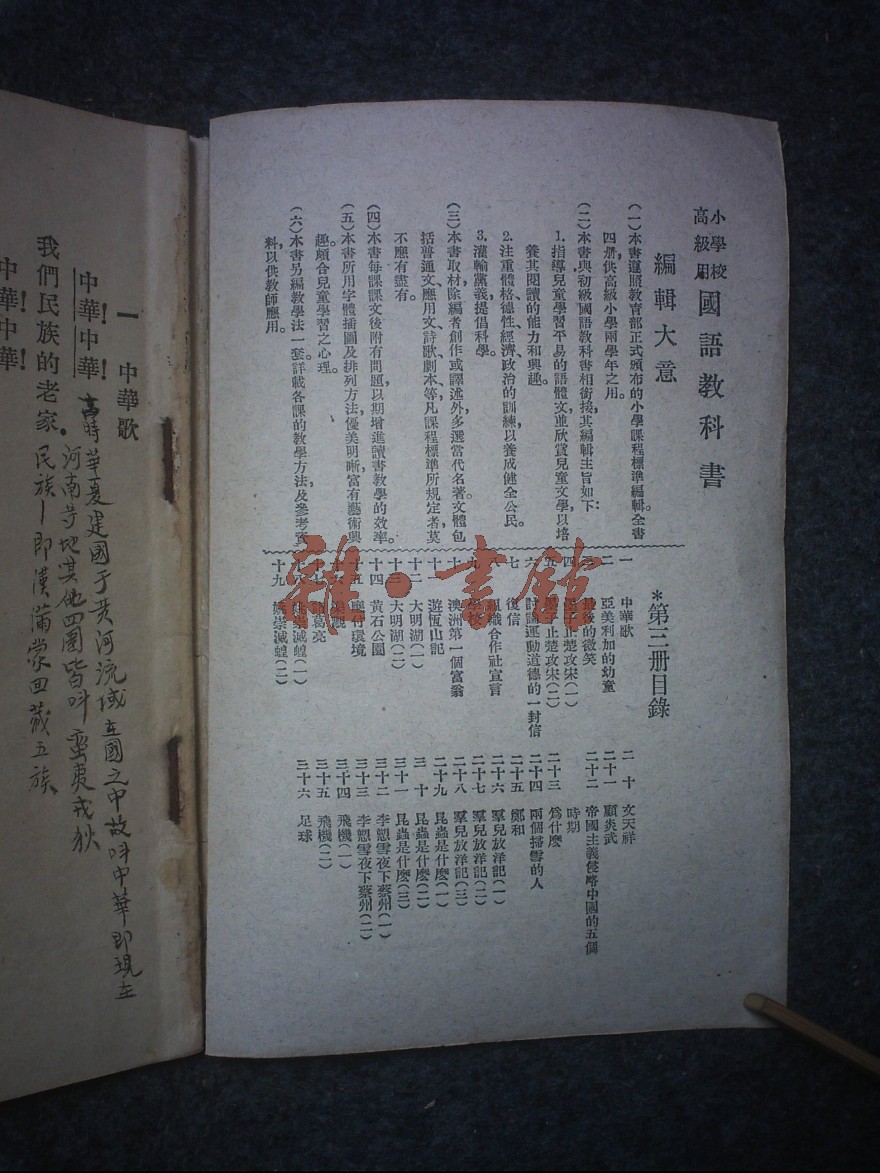 小學校
高級用
國語教科書
編輯大意
(一)本書遵照教育部正式頒布的小學課程標準編輯。全書
四册,供高級小學兩學年之用。
(二)本書與初級國語教科書相銜接,其編輯主旨如下:
1.指導兒童學習平易的語體文,並欣賞兒童文學,以培
養其閱讀的能力和興趣。
2.注重體格、德性、經濟、政治的訓練,以養成健全公民。
3.灌輸黨義,提倡科學。
(三)本書取材,除編者創作或譯述外,多選當代名著。文體包
括普通文、應用文、詩歌、劇本等,凡課程標準所規定者,莫
不應有盡有。
(四)本書每課課文後附有問題,以期增進讀書教學的效率。
(五)本書所用字體插圖及排列方法,優美明晰,富有藝術興
趣,頗合兒童學習之心理。
(六)本書另編教學法一套,詳載各課的教學方法,及參考資
料,以供教師應用。
*第三册目錄
一 中華歌
二 亞美利加的幼童
最後的微笑
四 止楚攻宋(一)
五 止楚攻宋(二)
六 討論運動道德的一封信
七 復信
八 組織合作社宣言
九
十 澳洲第一個富翁
十一 遊恆山記
十二 大明湖(一)
十三 大明湖(二)
十四 黃石公園
十五 應付環境
十六
十七 諸葛亮
十八 姚崇滅蝗(一)
十九 姚崇滅蝗(二)
二十 文天祥
二十一 顧炎武
二十二 帝國主義侵略中國的五個
時期
二十三 爲什麽
二十四 兩個掃雪的人
二十五 鄭和
二十六 羣兒放洋記(一)
二十七 羣兒放洋記(二)
二十八 羣兒放洋記(三)
二十九 昆蟲是什麽(一)
三十 昆蟲是什麽(二)
三十一 昆蟲是什麽(三)
三十二 李愬雪夜下蔡州(一)
三十三 李愬雪夜下蔡州(二)
三十四 飛機(一)
三十五 飛機(二)
三十六 足球
雜·書館
一 中華歌
中華!中華!
古時華夏建國于黃河流域立國之中故叫中華即現在
河南等地其他四圍皆叫蠻夷戎狄
我們民族的老家。
民族—即漢滿蒙回藏五族
中華!中華!